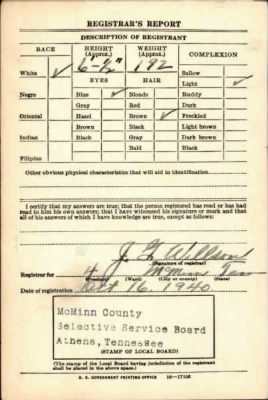 REGISTRAR'S REPORT
DESCRIPTION OF REGISTRANT
RACE HEIGHT (Approx.) WEIGHT (Approx.) COMPLEXION
White ✓ 6'-½" 192 Sallow
EYES HAIR Light ✓
Negro Blue ✓ Blonde Ruddy
Gray Red Dark
Oriental Hazel Brown ✓ Freckled
Brown Black Light brown
Indian Black Gray Dark brown
Bald Black
Filipino
Other obvious physical characteristics that will aid in identification
I certify that my answers are true; that the person registered has read or has had read to him his own answers; that I have witnessed his signature or mark and that all of his answers of which I have knowledge are true, except as follows:
J.
(Signature of registrar)
Registrar for 4 McMinn Tenn
(Precinct) (Ward) (City or county) (State)
Date of registration Oct 16, 1940.
McMinn County
Selective Service Board
Athens, Tennessee
(STAMP OF LOCAL BOARD)
(The stamp of the Local Board having jurisdiction of the registrant
shall be placed in the above space.)
U. S. GOVERNMENT PRINTING OFFICE